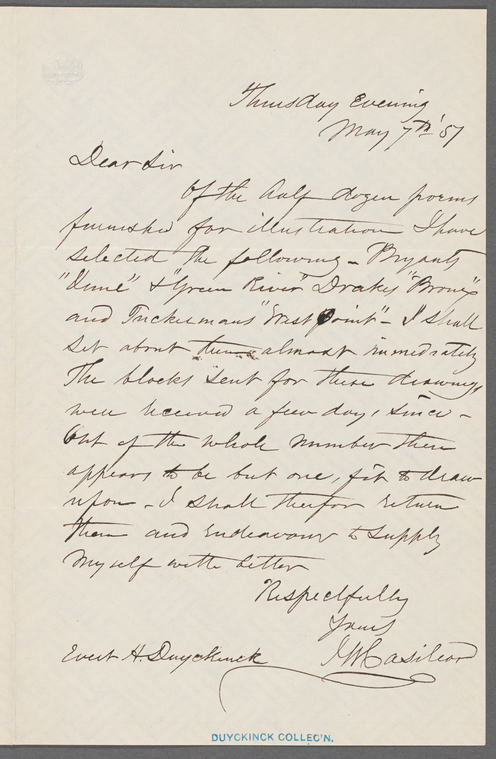 Thursday Evening
May 7th '57
Dear Sir
Of the half dozen poems
furnished for illustration I have
selected the following - Bryants
"June" & "Green River" Drakes "Bronx"
and Tuckermans "West Point" - I shall
set about them almost immediately
The blocks sent for these drawings,
were received a few days since -
Out of the whole number there
appears to be but one, fit to draw
upon - I shall therfor return
them and endeavour to supply
myself with better
Respectfully
Yours
Evert A. Duyckinck JW Casilear
DUYCKINCK COLLEC'N.